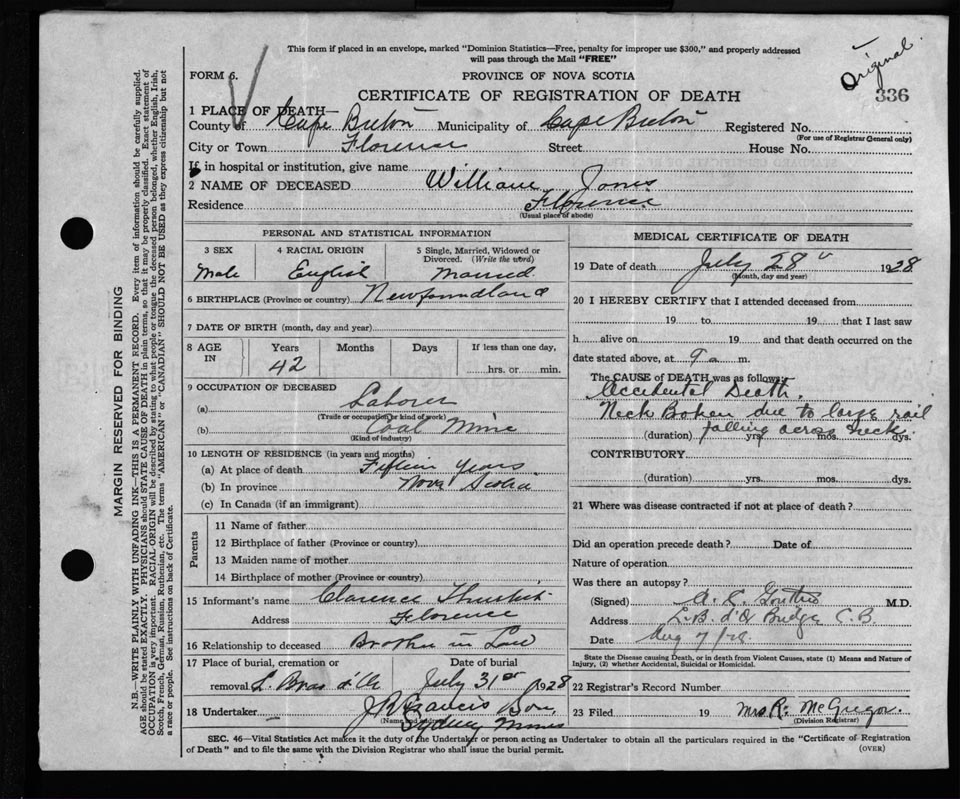 This form if placed in an envelope, marked "Dominion Statistics—Free, penalty for improper use $300," and properly addressed
will pass through the Mail "FREE"
Original
FORM 6.
PROVINCE OF NOVA SCOTIA
336
CERTIFICATE OF REGISTRATION OF DEATH
1 PLACE OF DEATH—
County of Cape Breton Municipality of Cape Breton Registered No.
(For use of Registrar General only)
City or Town Florence Street House No.
If in hospital or institution, give name
2 NAME OF DECEASED William Jones
Residence Florence
(Usual place of abode)
PERSONAL AND STATISTICAL INFORMATION
3 SEX 4 RACIAL ORIGIN 5 Single, Married, Widowed or
Divorced. (Write the word)
Male English Married
6 BIRTHPLACE (Province or country) Newfoundland
7 DATE OF BIRTH (month, day and year)
8 AGE IN Years Months Days If less than one day,
42 hrs. or min.
9 OCCUPATION OF DECEASED
(a) Laborer
(Trade or occupation or kind of work)
(b) Coal Mine
(Kind of industry)
10 LENGTH OF RESIDENCE (in years and months)
(a) At place of death Fifteen Years
(b) In province Nova Scotia
(c) In Canada (if an immigrant)
Parents
11 Name of father
12 Birthplace of father (Province or country)
13 Maiden name of mother
14 Birthplace of mother (Province or country)
15 Informant's name Clarence
Address Florence
16 Relationship to deceased Brother in Law
17 Place of burial, cremation or Date of burial
removal L. Bras d'Or July 31st 1928
18 Undertaker J R Francis Son
(Name and address)
Sydney Mines
MEDICAL CERTIFICATE OF DEATH
19 Date of death July 28 1928
(Month, day and year)
20 I HEREBY CERTIFY that I attended deceased from
19 to 19 that I last saw
h alive on 19 and that death occurred on the
date stated above, at 9 a m.
The CAUSE of DEATH was as follows:
Accidental Death.
Neck Boken due to large rail
falling across neck.
(duration) yrs. mos. dys.
CONTRIBUTORY
(duration) yrs. mos. dys.
21 Where was disease contracted if not at place of death?
Did an operation precede death? Date of
Nature of operation
Was there an autopsy?
(Signed) M.D.
Address L. B. d'Or Bridge C.B.
Date Aug 7/28
State the Disease causing Death, or in death from Violent Causes, state (1) Means and Nature of
Injury, (2) whether Accidental, Suicidal or Homicidal.
22 Registrar's Record Number
23 Filed 19 Mrs R. McGregor
(Division Registrar)
SEC. 46—Vital Statistics Act makes it the duty of the Undertaker or person acting as Undertaker to obtain all the particulars required in the "Certificate of Registration
of Death" and to file the same with the Division Registrar who shall issue the burial permit.
(OVER)
MARGIN RESERVED FOR BINDING
N.B.—WRITE PLAINLY WITH UNFADING INK—THIS IS A PERMANENT RECORD. Every item of information should be carefully supplied.
AGE should be stated EXACTLY. PHYSICIANS should STATE CAUSE OF DEATH in plain terms, so that it may be properly classified. Exact statement of
OCCUPATION is very important. RACIAL ORIGIN will be described by stating to what people or tongue the deceased person belonged, whether English, Irish,
Scotch, French, German, Russian, Ruthenian, etc. The terms "AMERICAN" or "CANADIAN" SHOULD NOT BE USED as they express citizenship but not
a race or people. See instructions on back of Certificate.